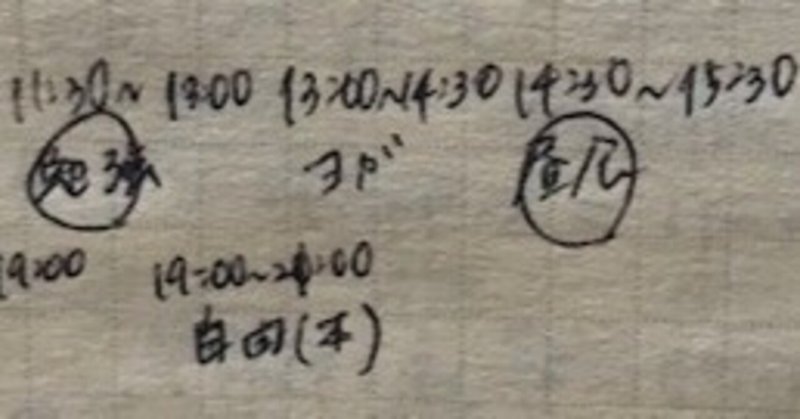 11:30~13:00 13:00~14:30 14:30~15:30
勉強 ヨガ 昼風
19:00 19:00~21:00
自由(本)